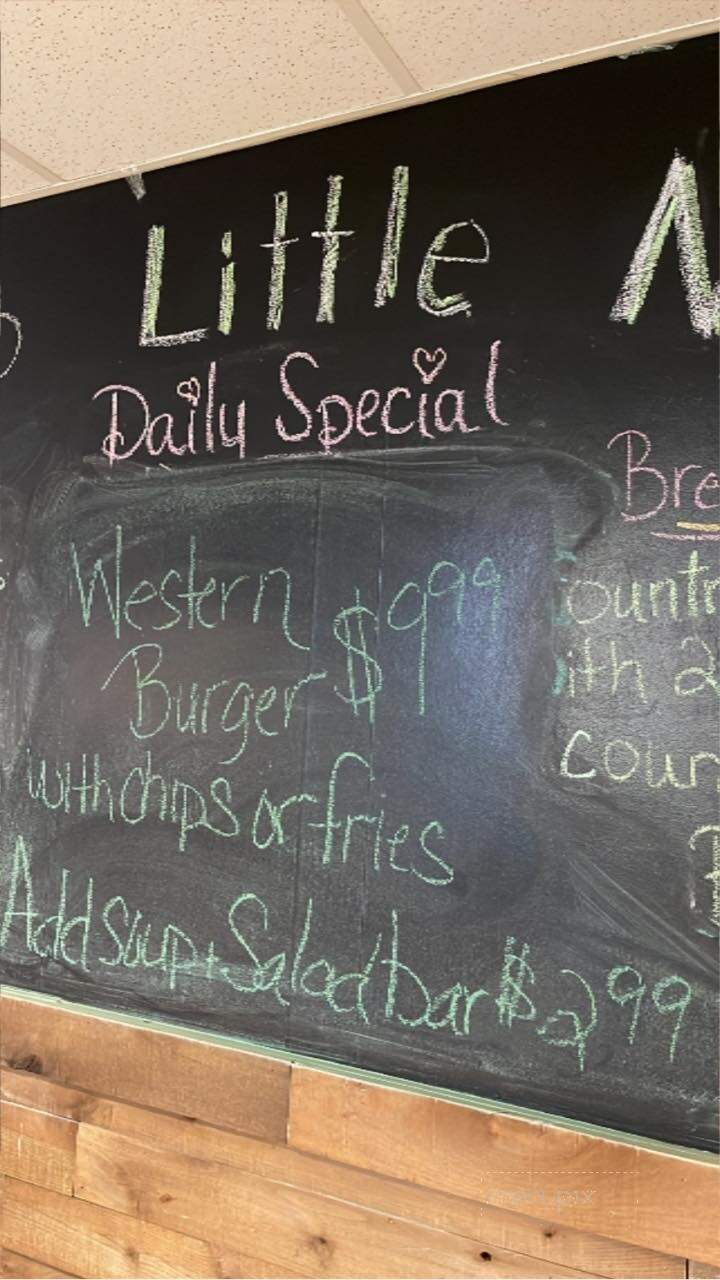 Little
Daily Special
Western $9.99
Burger
with chips or fries
Add Soup + Salad bar $2.99
Bre
ountr
ith 2
coun